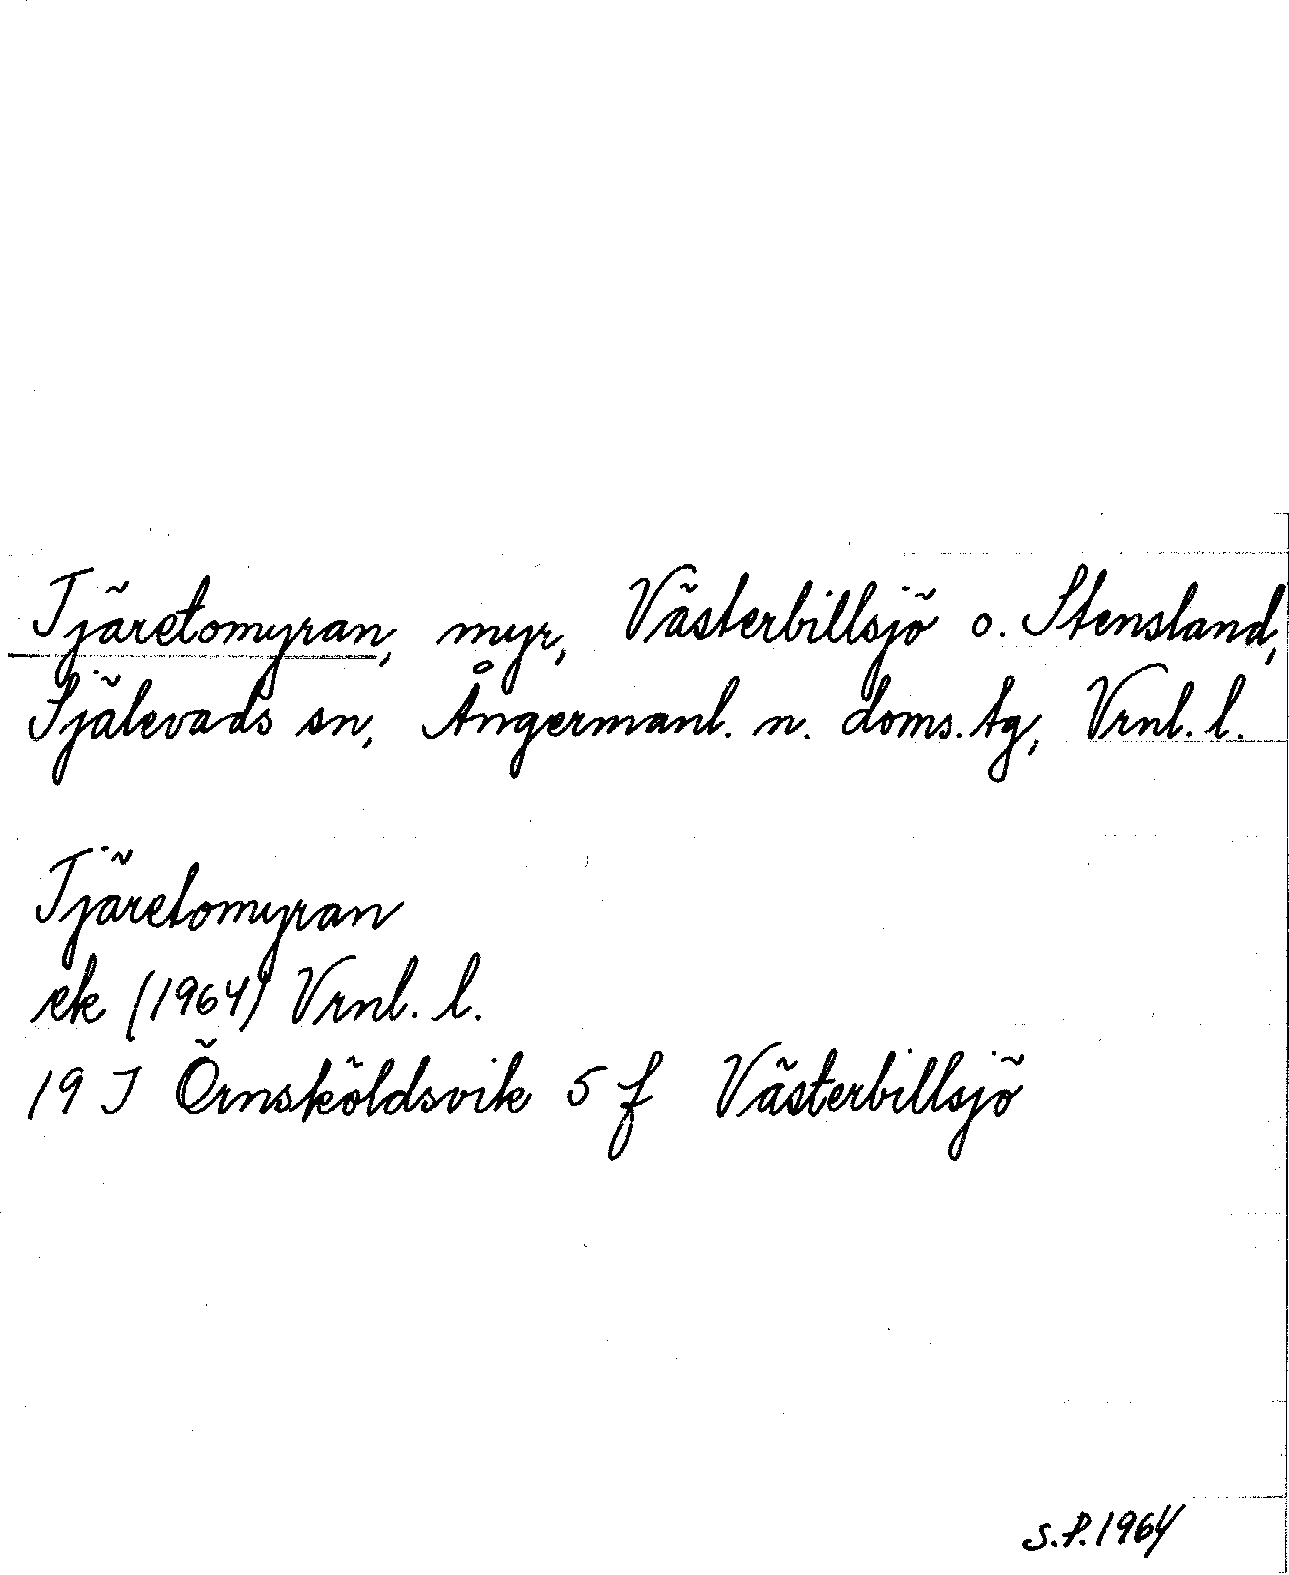 Tjäretomyran, myr, Västerbillsjö o. Stensland,
Själevads sn, Ångermanl. n. doms.tg, Vrnl. l.
Tjäretomyran
ek (1964) Vrnl. l.
19 J Örnsköldsvik 5 f Västerbillsjö
S.P. 1964